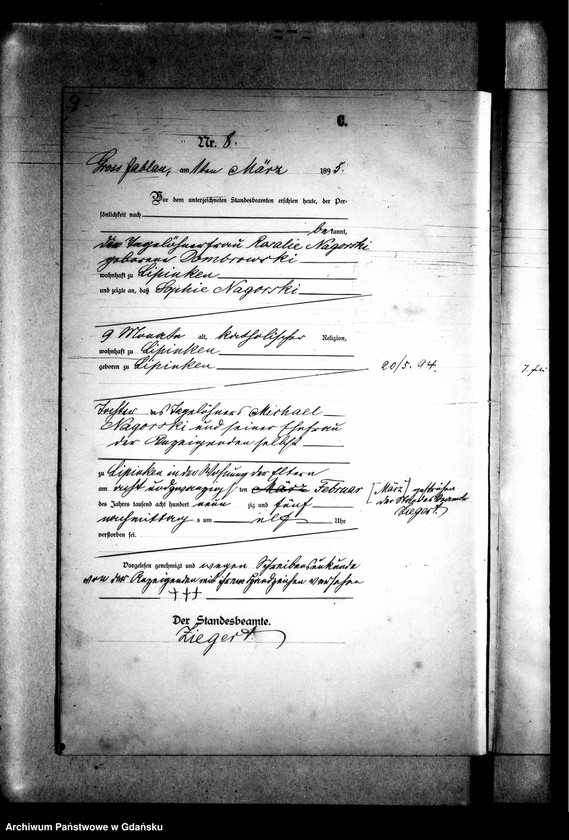 9
C.
Nr. 8.
Gross Jablau, am 1ten März 1895.
Vor dem unterzeichneten Standesbeamten erschien heute, der Per-
sönlichkeit nach
bekannt,
die Tagelöhnerfrau Rosalie Nagorski
geborene Dombrowski
wohnhaft zu Lipinken
und zeigte an, daß Sophie Nagorski
9 Monate alt, katholischer Religion,
wohnhaft zu Lipinken
geboren zu Lipinken
20/5. 94.
Tochter des Tagelöhners Michael
Nagorski und seiner Ehefrau
der Anzeigenden selbst
zu Lipinken in der Wohnung der Eltern
am acht und zwanzigsten März Februar
[März] gestrichen
Der Standesbeamte
Ziegert.
des Jahres tausend acht hundert neun zig und fünf
nachmittags um elf Uhr
verstorben sei.
Vorgelesen genehmigt und wegen Schreibensunkunde
von der Anzeigenden mit ihrem Handzeichen versehen
+++
Der Standesbeamte.
Ziegert.
Archiwum Państwowe w Gdańsku